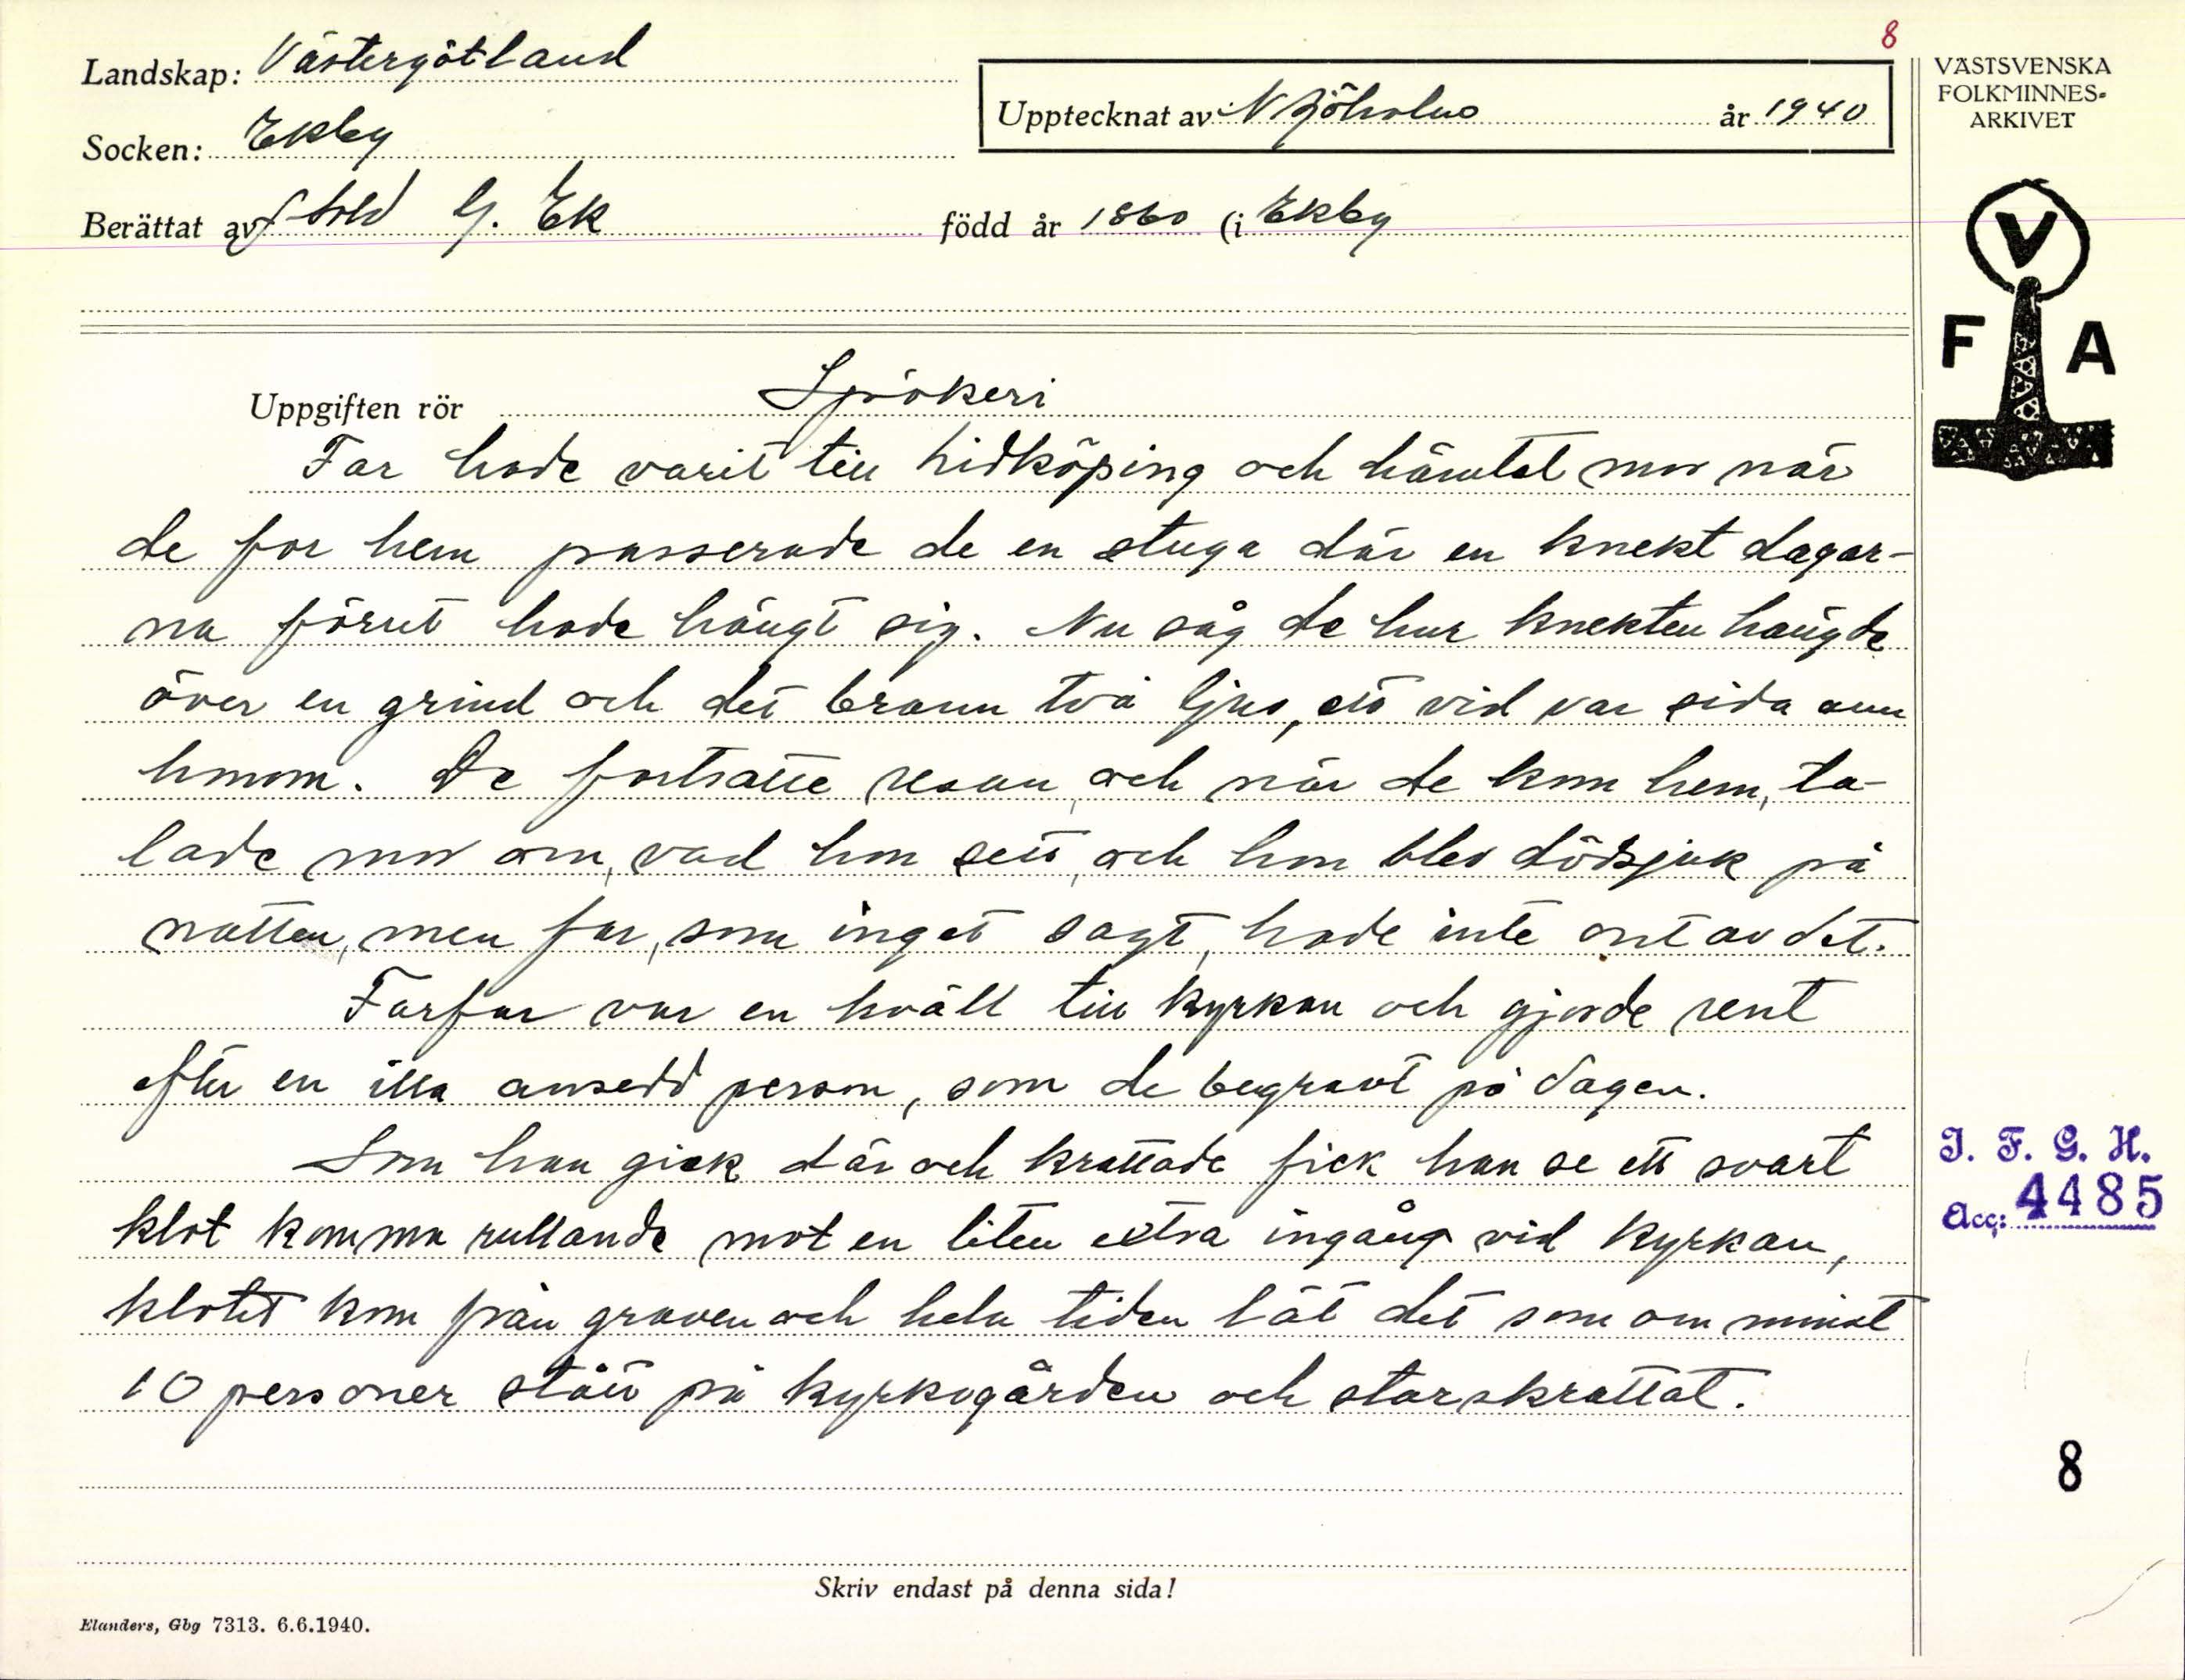 8
Landskap: Västergötland
Upptecknat av: N Sjöholm år 1940
VÄSTSVENSKA
FOLKMINNES-
ARKIVET
Socken: Ekby
Berättat av f. sold G. Ek född år 1860 (i Ekby
V
F A
Uppgiften rör Spökeri
Far hade varit till Lidköping och hämtat mor när
de for hem passerade de en stuga där en knekt dagar-
na förut hade hängt sig. Nu såg de hur knekten hängde
över en grind och det brann två ljus, ett vid var sida om
honom. De fortsatte resan, och när de kom hem, ta-
lade mor om, vad hon sett, och hon blev dödsjuk på
natten, men far, som inget sagt, hade inte ont av det.
Farfar var en kväll till kyrkan och gjorde rent
efter en illa ansedd person, som de begravt på dagen.
Som han gick där och krattade fick han se ett svart
klot komma rullande mot en liten extra ingång vid kyrkan,
klotet kom från graven och hela tiden lät det som om minst
10 personer stått på kyrkogården och storskrattat.
I. F. G. H.
Acc: 4485
8
Skriv endast på denna sida!
Elanders, Gbg 7313. 6.6.1940.